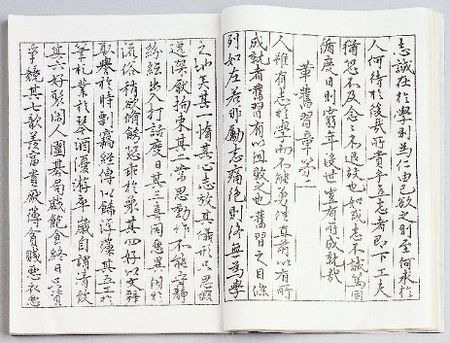 志誠在於學則爲仁由己欲之則至何求於
人何待於後哉所貴乎立志者即下工夫
猶恐不及念〻不退故也如或志不誠篤因
循度日則窮年沒世豈有所成就哉
革舊習章第二
人雖有志於學而不能勇往直前以有所
成就者舊習有以沮敗之也舊習之目條
列如左若非勵志痛絶則終無爲學
之地矣其一惰其心志放其儀形只思暇
逸深厭拘束其二常思動作不能守靜
紛紜出入打話度日其三喜同惡異汨於
流俗稍欲修飭恐乖於衆其四好以文辭
取譽於時剽竊經傳以飾浮藻其五工於
筆札業於琴酒優游卒歲自謂清致
其六好聚閑人圍碁局戲飽食終日只資
爭競其七歆羨富貴厭薄貧賤惡衣惡